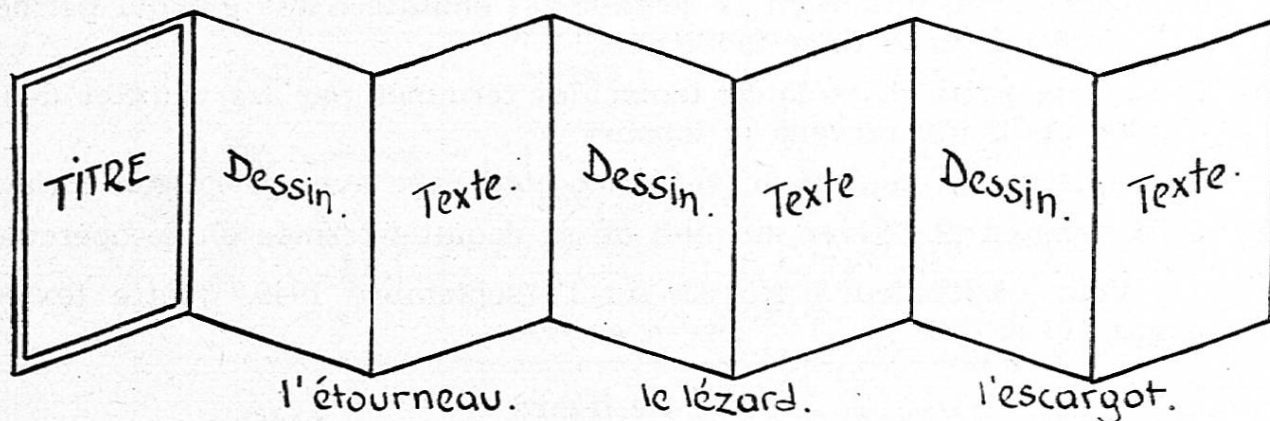 TITRE
Dessin.
Texte.
Dessin.
Texte
Dessin.
Texte.
l'étourneau.
le lézard.
l'escargot.